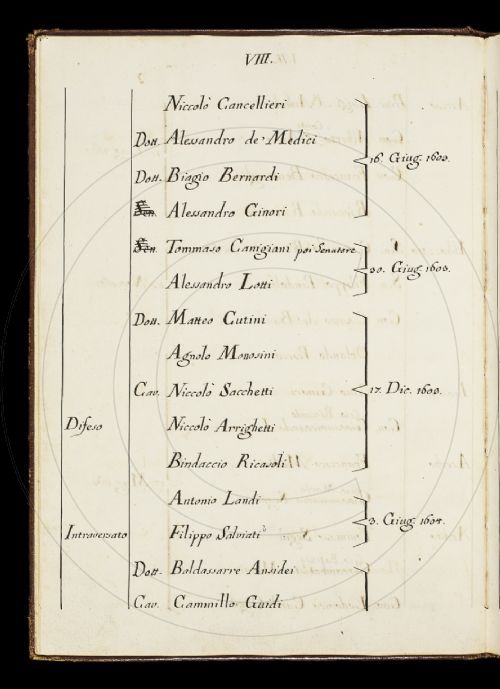 VIII.
Niccolò Cancellieri
Dott. Alessandro de' Medici
16. Giug. 1603.
Dott. Biagio Bernardi
Alessandro Ginori
Sen. Tommaso Canigiani poi Senatore
30. Giug. 1603.
Alessandro Lotti
Dott. Matteo Cutini
Agnolo Monosini
Cav. Niccolò Sacchetti
17. Dic. 1603.
Difeso Niccolò Arrighetti
Bindaccio Ricasoli
Antonio Landi
3. Giug. 1604.
Intraversato Filippo Salviati
Dott. Baldassarre Ansidei
Cav. Cammillo Guidi